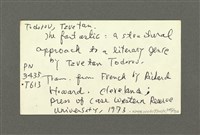 Todorov, Tzvetan.
The fantastic: a structural
approach to a literary genre
by Tzvetan Todorov.
PN
3435
.T613
Trans. from French by Richard
Howard. Cleveland;
press of Case Western Reserve
University, 1973